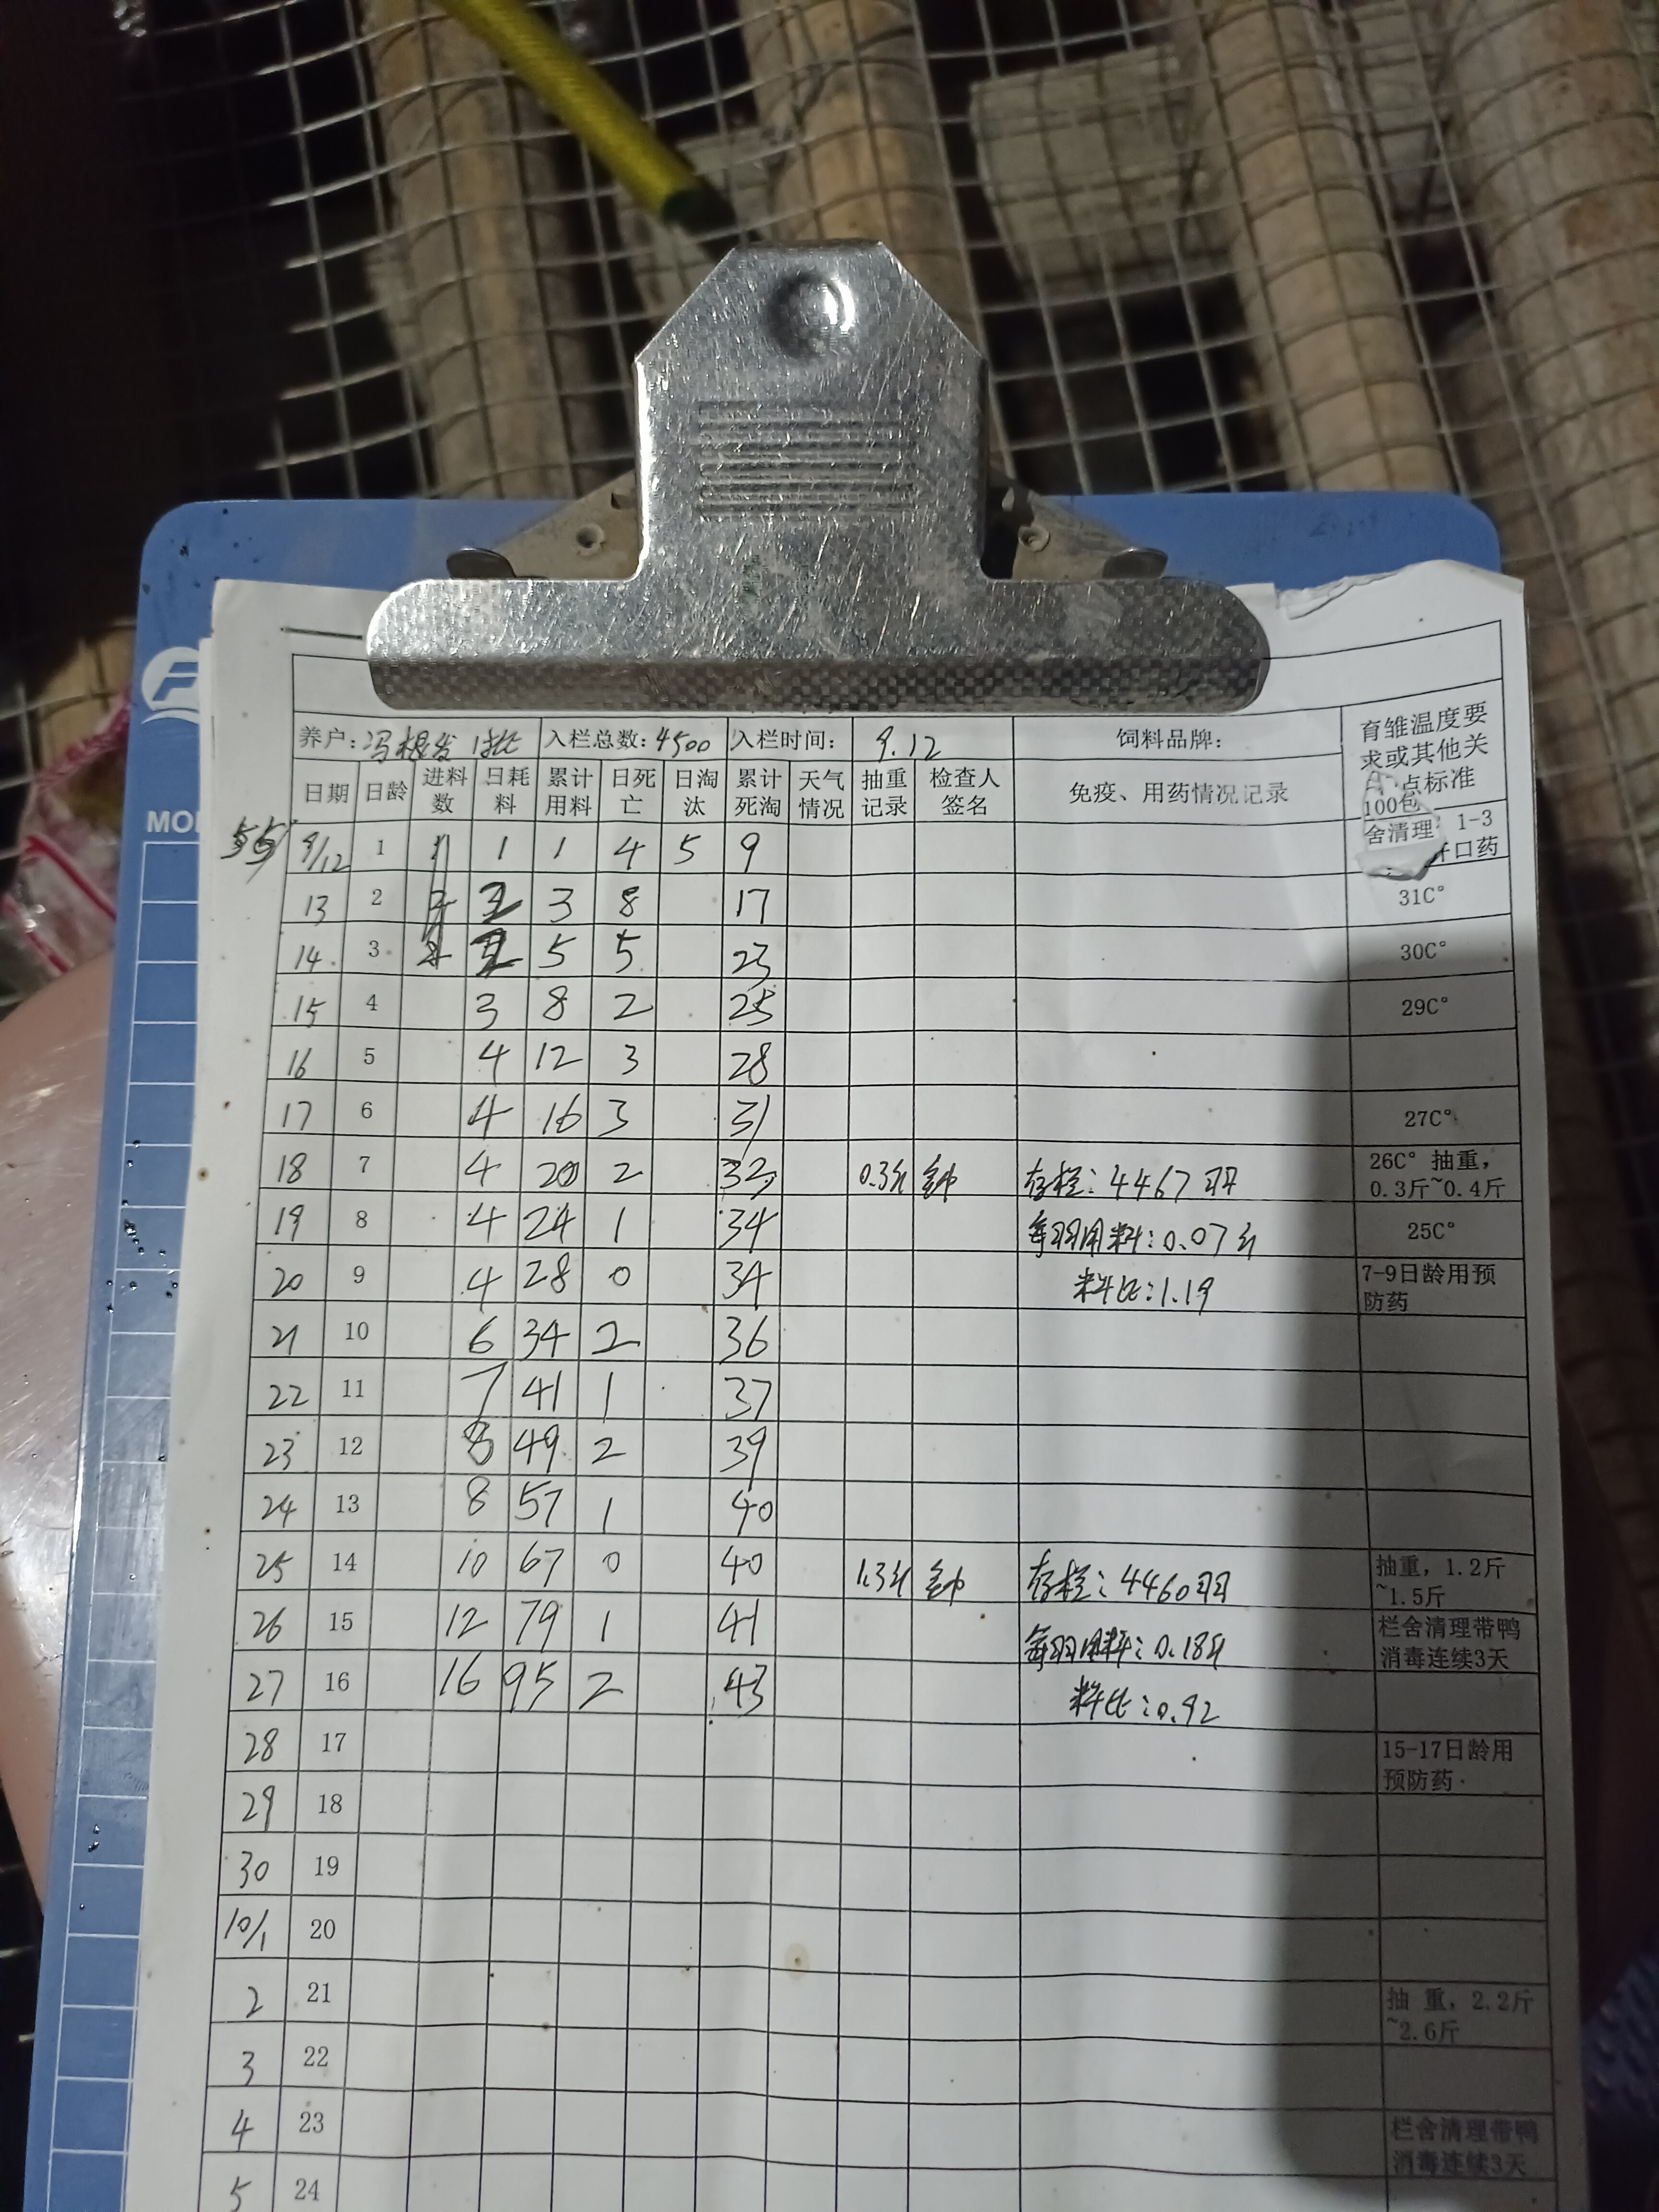 养户:冯根发 1批 入栏总数:4500 入栏时间: 9.12 饲料品牌: 育雏温度要求或其他关
日期 日龄 进料数 日耗料 累计用料 日死亡 日淘汰 累计死淘 天气情况 抽重记录 检查人签名 免疫、用药情况记录 点标准
100包
MOI
9/12 1 1 1 1 4 5 9 舍清理 1-3 开口药
13 2 2 2 3 8 17 31C°
14. 3 2 2 5 5 23 30C°
15 4 3 8 2 25 29C°
16 5 4 12 3 28
17 6 4 16 3 31 27C°
18 7 4 20 2 32 0.3斤 存栏:4467羽 26C° 抽重，0.3斤~0.4斤
19 8 4 24 1 34 每羽用料:0.07斤 25C°
20 9 4 28 0 34 料比:1.19 7-9日龄用预防药
21 10 6 34 2 36
22 11 7 41 1 37
23 12 8 49 2 39
24 13 8 57 1 40
25 14 10 67 0 40 1.3斤 存栏:4460羽 抽重，1.2斤~1.5斤
26 15 12 79 1 41 每羽用料:0.18斤 栏舍清理带鸭消毒连续3天
27 16 16 95 2 43 料比:0.92
28 17 15-17日龄用预防药
29 18
30 19
10/1 20
2 21 抽 重，2.2斤~2.6斤
3 22
4 23 栏舍清理带鸭消毒连续3天
5 24